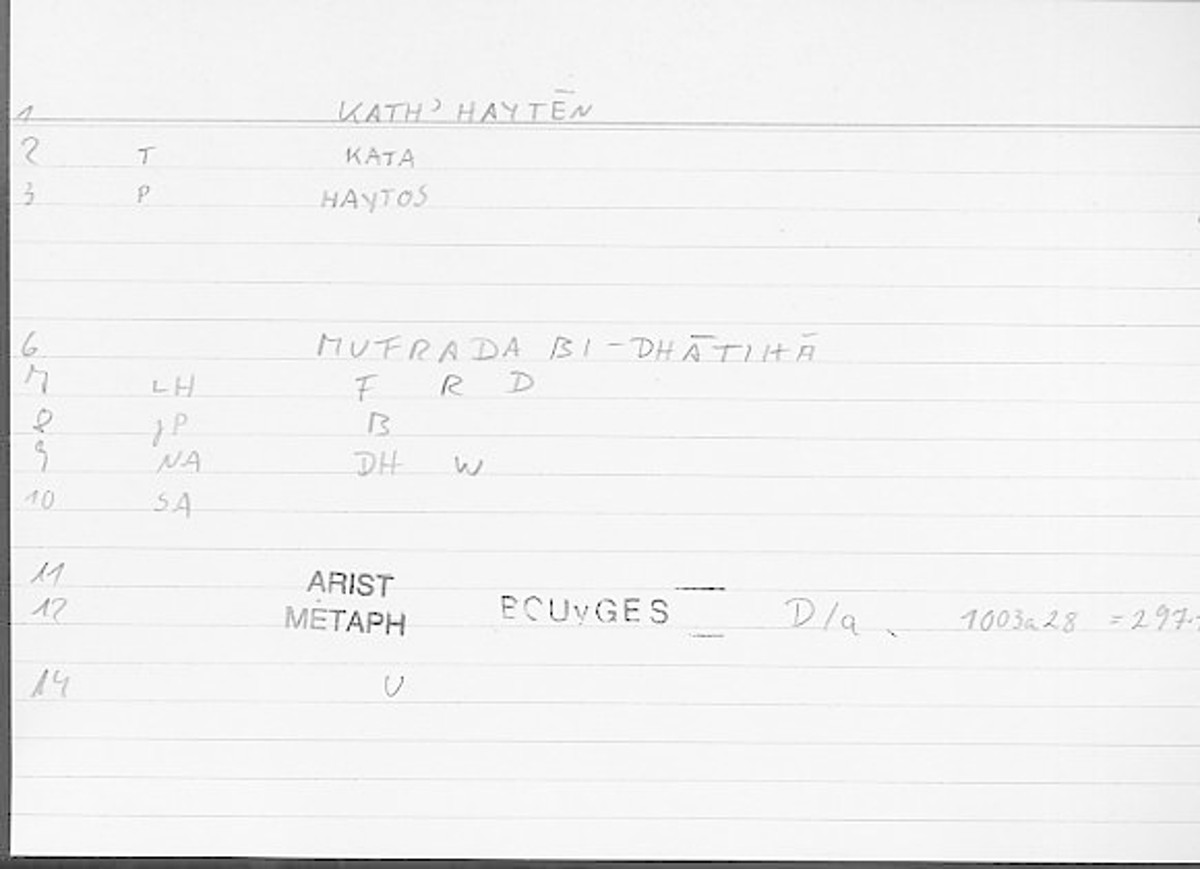 1 KATH' HAYTĒN
2 T KATA
3 P HAYTOS
6 MUFRADA BI-DHĀTIHĀ
7 LH F R D
8 JP B
9 NA DH W
10 SA
11 ARIST
12 METAPH D/a. 1003a28 =297.
14 U